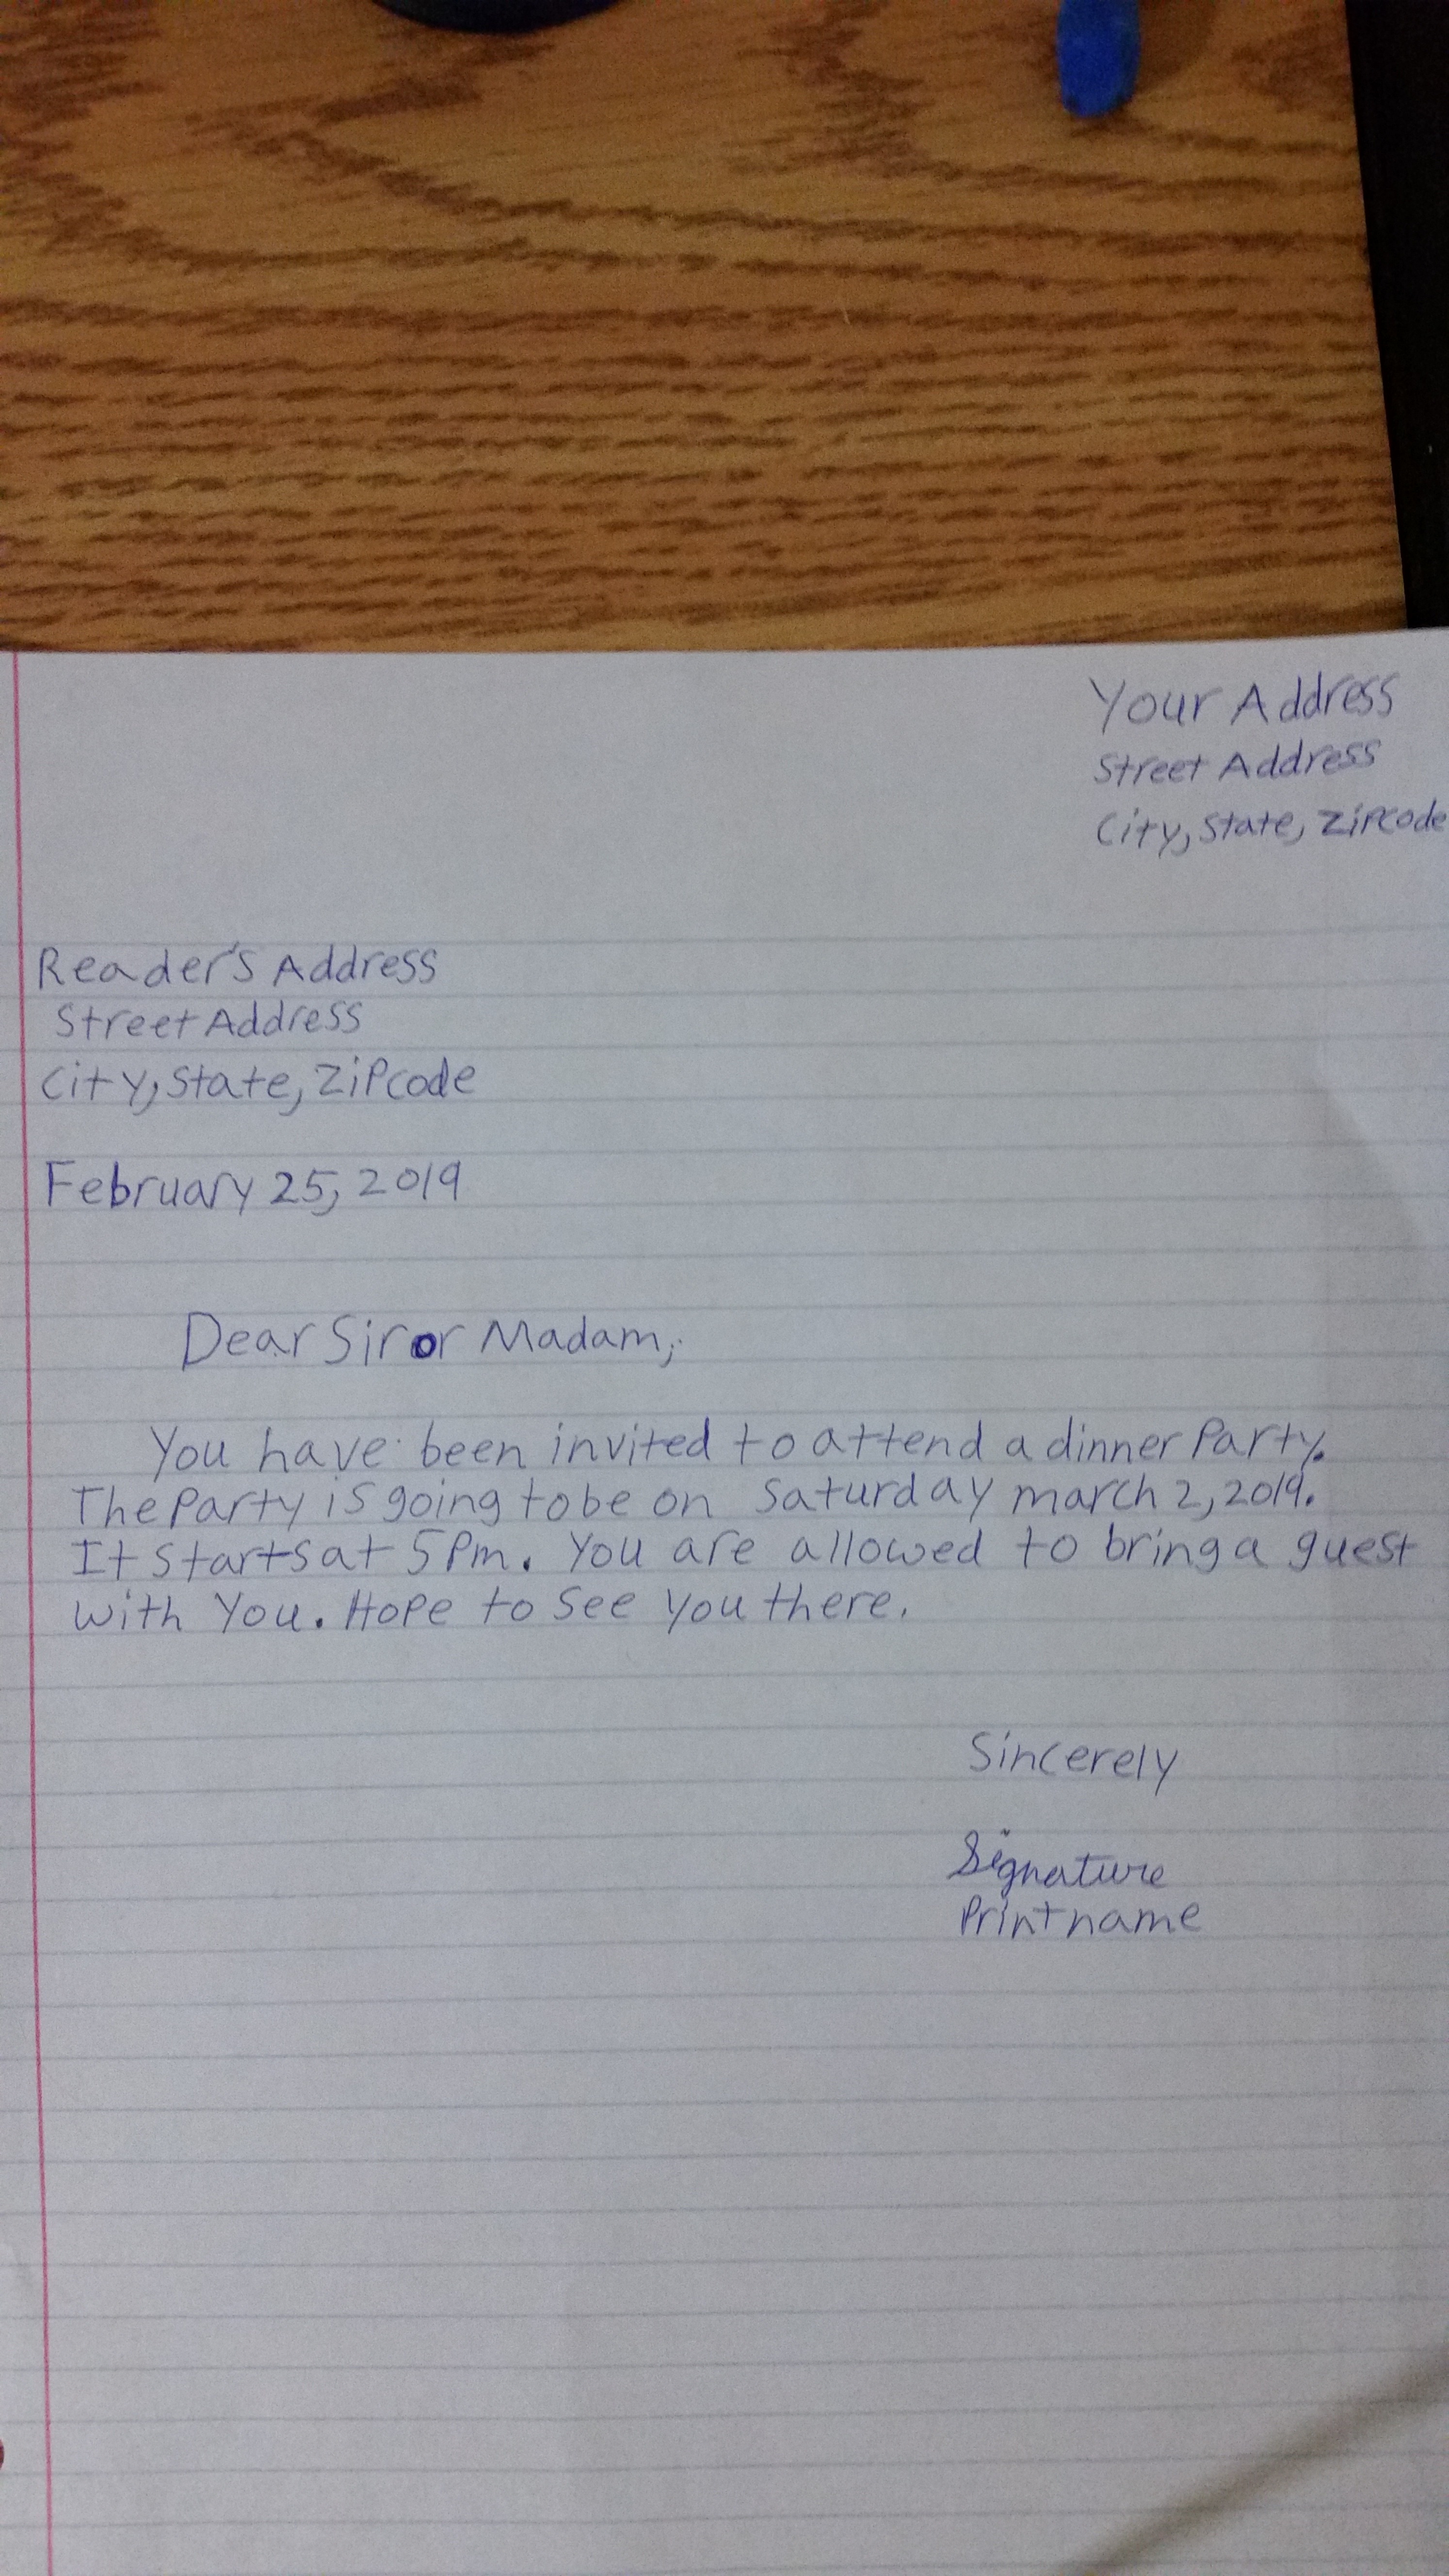 Your Address
Street Address
City, State, Zipcode
Reader's Address
Street Address
City, State, Zipcode
February 25, 2019
Dear Sir or Madam,
You have been invited to attend a dinner Party.
The Party is going to be on Saturday march 2, 2019.
It starts at 5 Pm. You are allowed to bring a guest
with You. Hope to see You there.
Sincerely
Signature
Print name